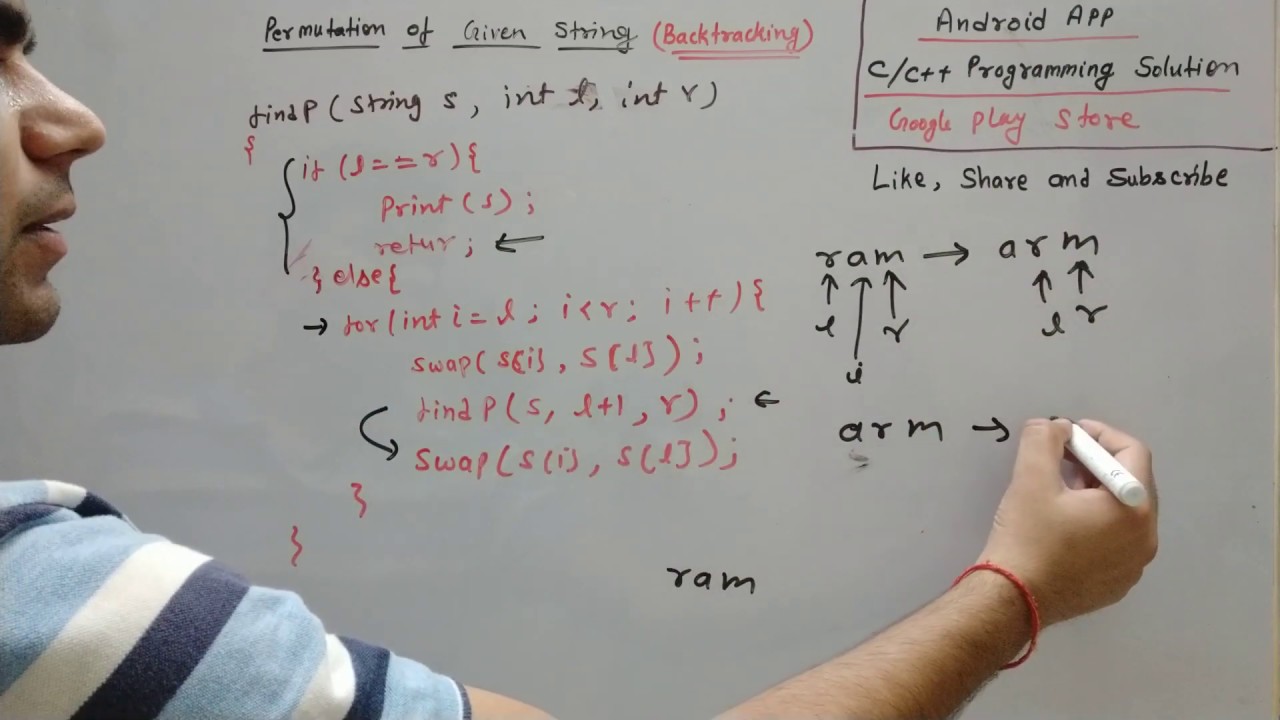 Permutation of Given String (Backtracking)
findP (string s, int l, int r)
{
{ if (l == r) {
Print (s) ;
retur ; ←
} else {
→ for (int i = l ; i < r ; i ++) {
swap( s[i] , s[l] ) ;
findP (s, l+1 , r) ; ←
swap (s[i] , s[l]) ;
}
}
Android APP
C/C++ Programming Solution
Google Play Store
Like, Share and Subscribe
ram → arm
↑ ↑ ↑ ↑ ↑
l r l r
i
arm →
ram